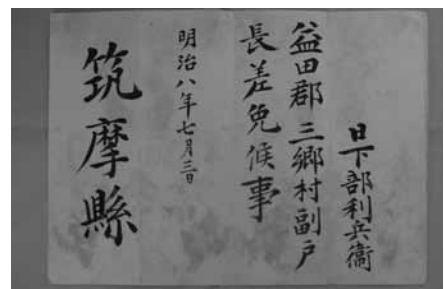 日下部利兵衞
益田郡三郷村副戸
長差免候事
明治八年七月三日
筑摩縣